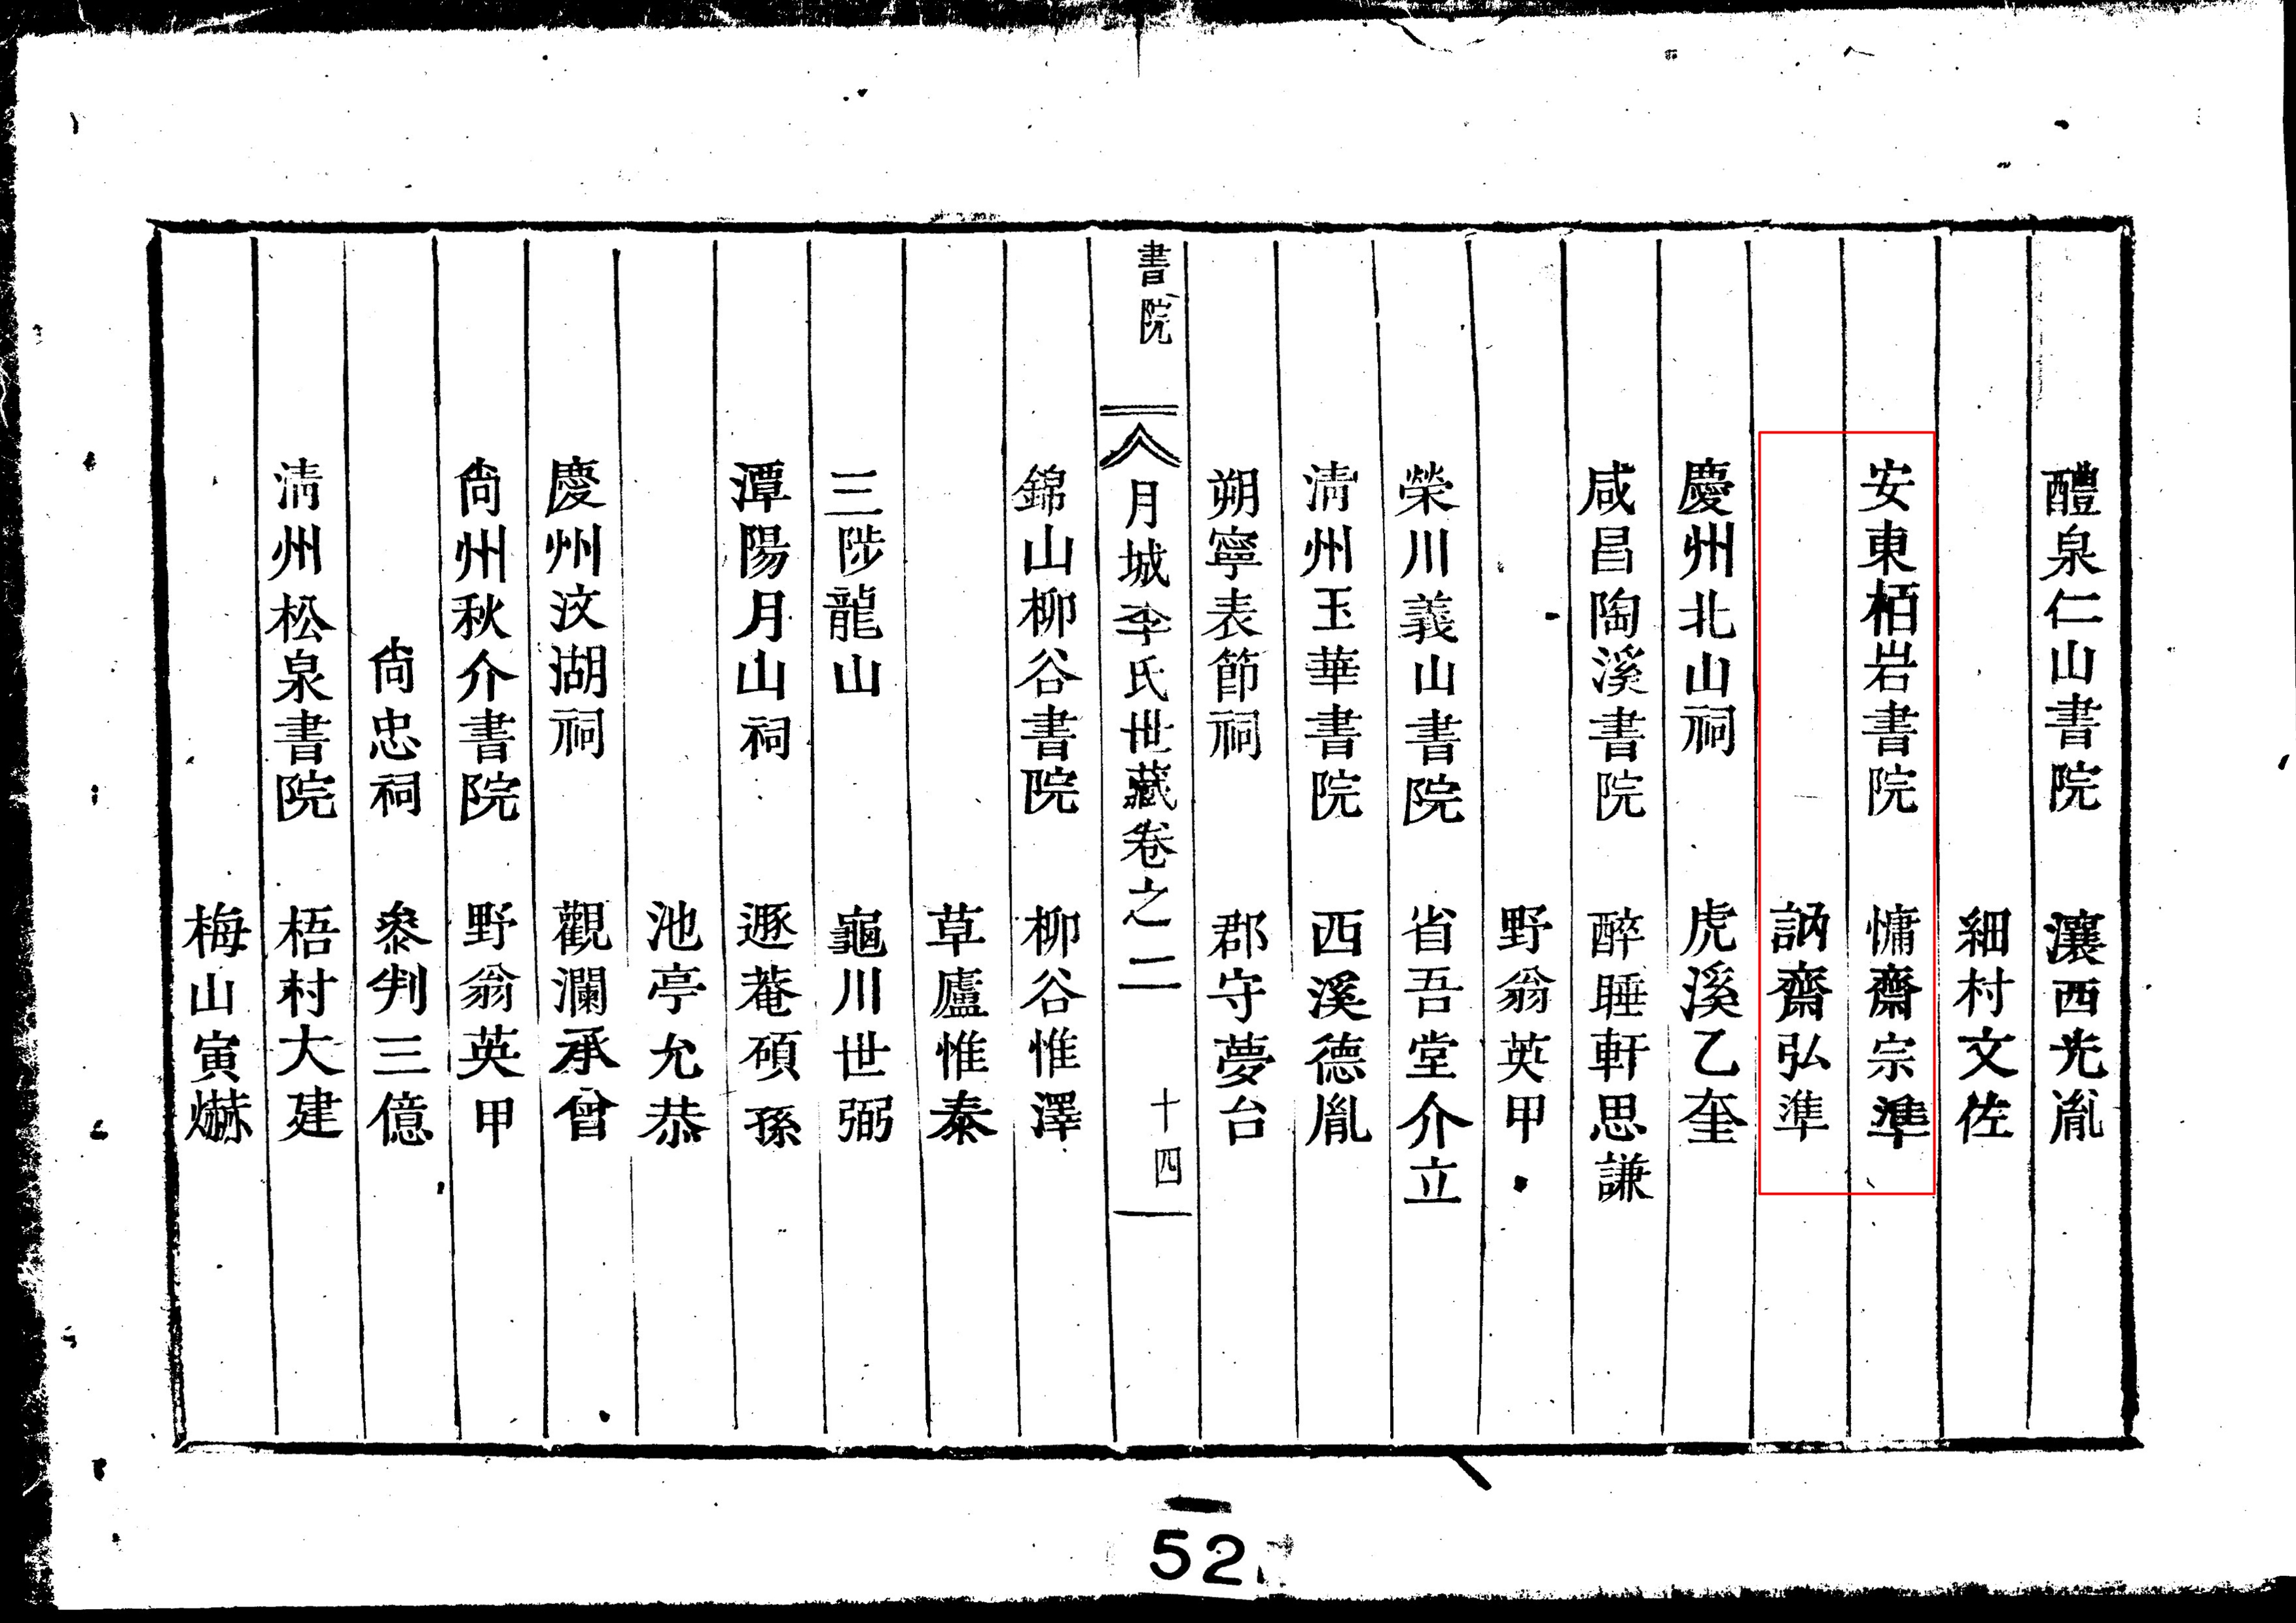 醴泉仁山書院 瀼西光胤
細村文佐
安東栢岩書院 慵齋宗準
訥齋弘準
慶州北山祠 虎溪乙奎
咸昌陶溪書院 醉睡軒思謙
野翁英甲
榮川義山書院 省吾堂介立
淸州玉華書院 西溪德胤
朔寧表節祠 郡守夢台
書院 月城李氏世藏卷之二 十四
錦山柳谷書院 柳谷惟澤
草廬惟泰
三陟龍山 龜川世弼
潭陽月山祠 遯菴碩孫
池亭允恭
慶州汶湖祠 觀瀾承曾
尙州秋介書院 野翁英甲
尙忠祠 參判三億
淸州松泉書院 梧村大建
梅山寅爀
52